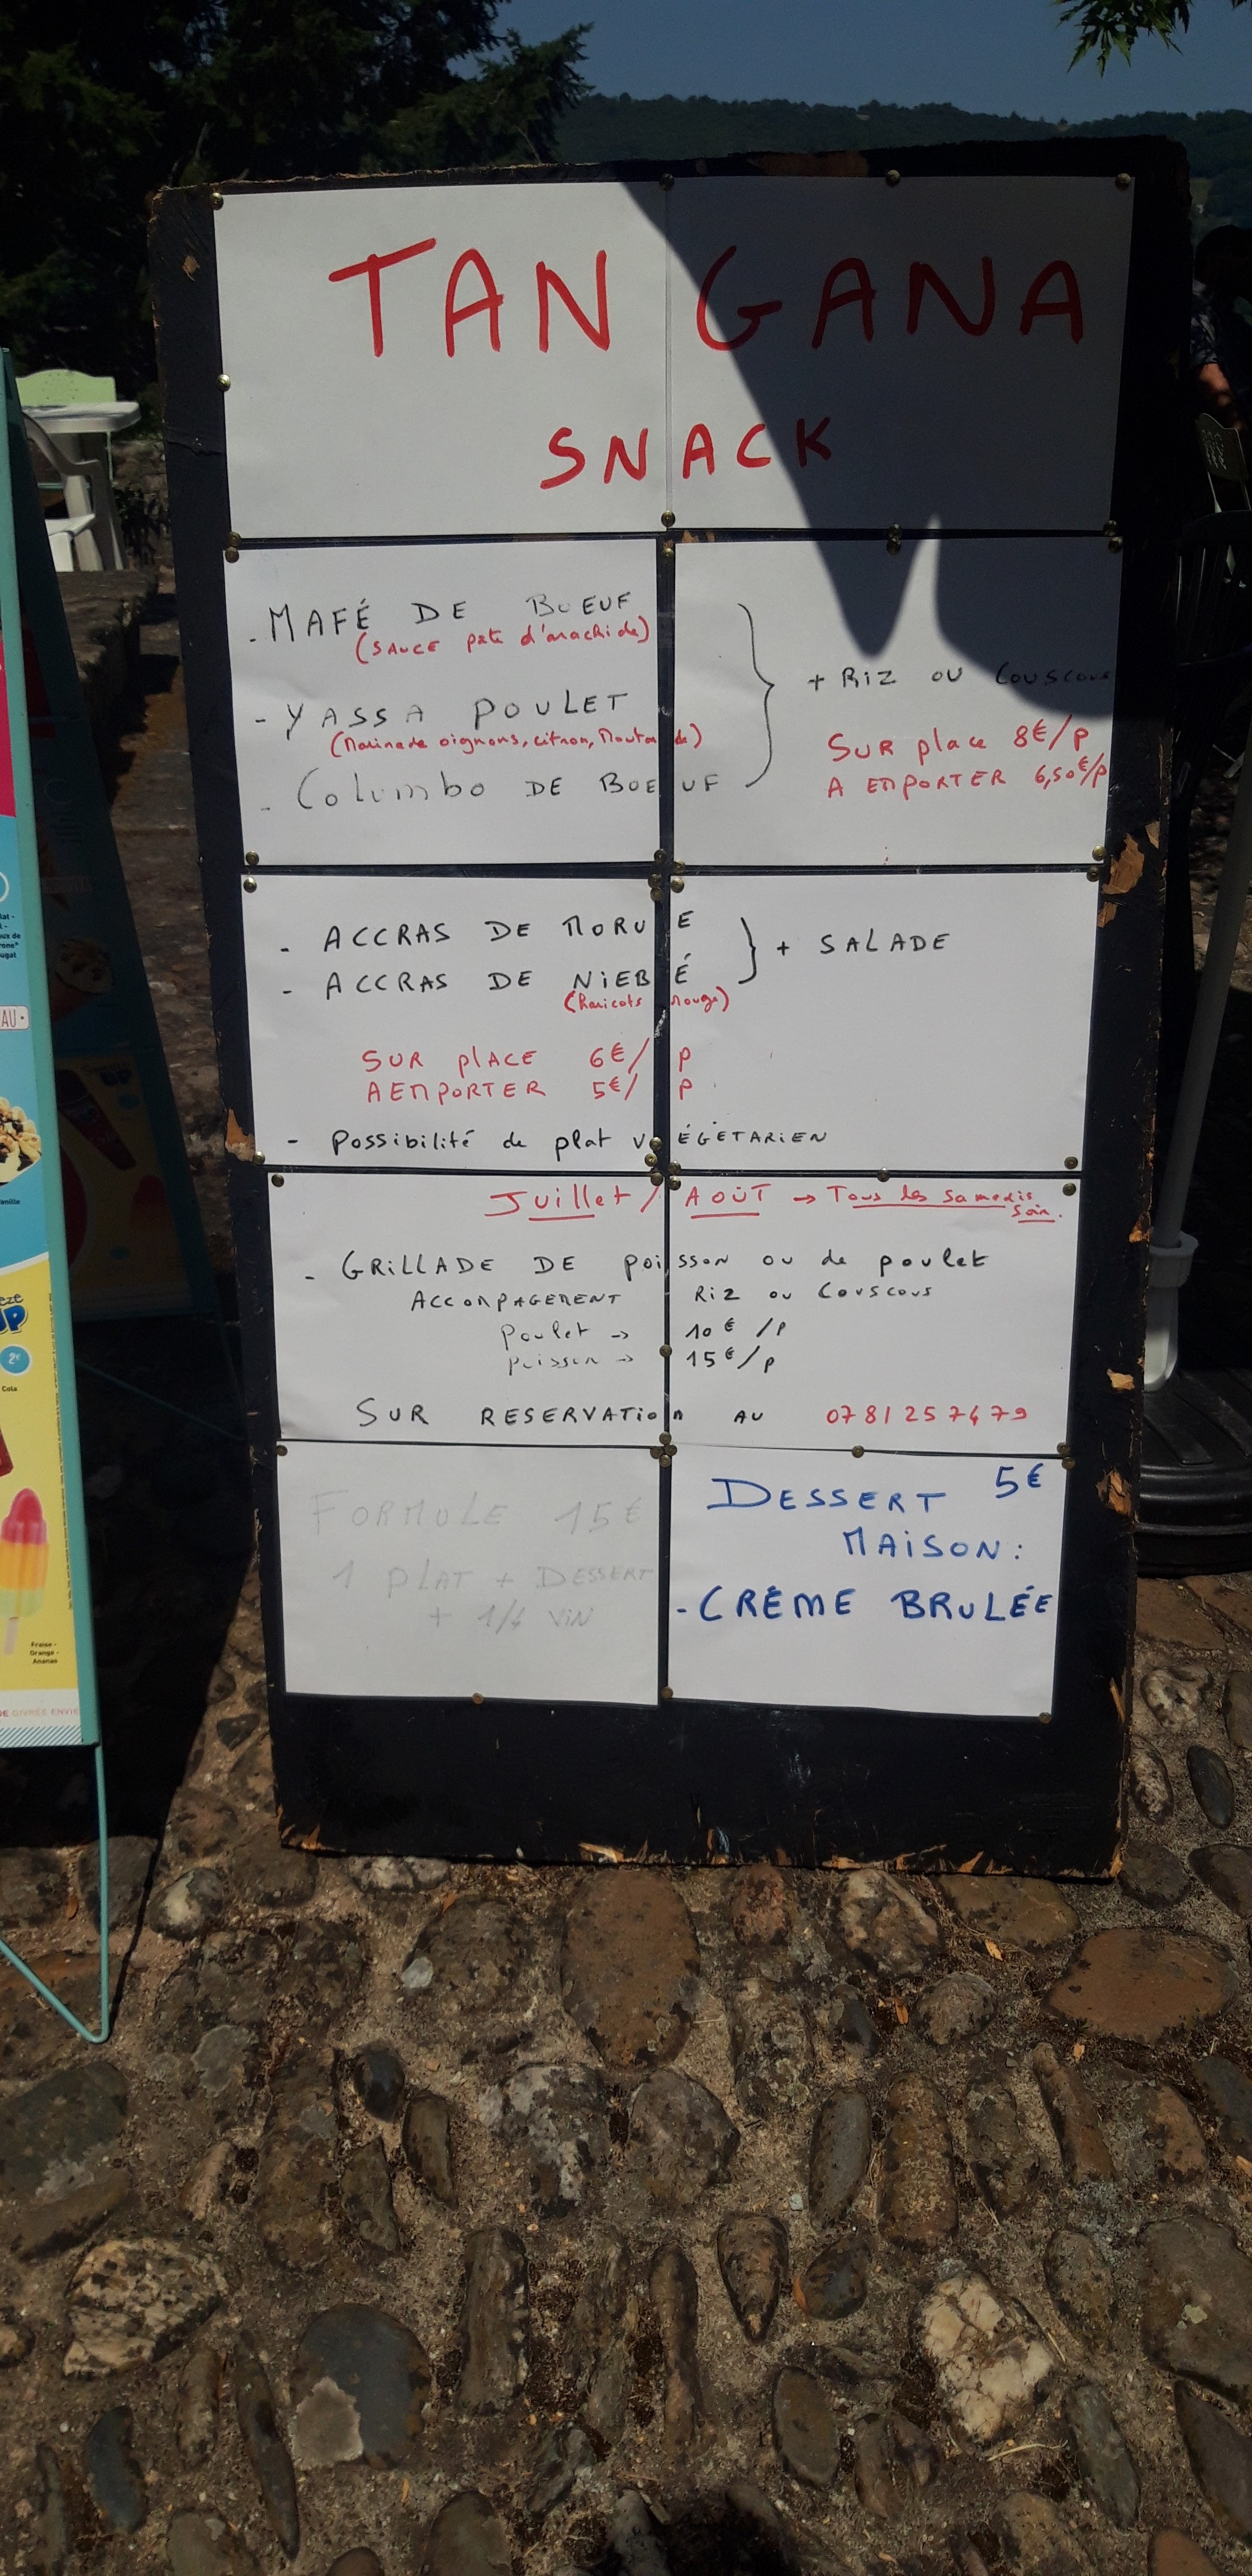 TAN GANA
SNACK
- MAFÉ DE BOEUF
(SAUCE pate d'arachide)
- YASSA POULET
(Marinade oignons, citron, Moutarde)
- Columbo DE BOEUF
+ RIZ OU Couscous
SUR place 8€/P
A EMPORTER 6,50€/P
- ACCRAS DE MORUE
- ACCRAS DE NIEBÉ
(haricots rouge)
+ SALADE
SUR plACE 6€/ P
A EMPORTER 5€/ P
- Possibilité de plat VÉGÉTARIEN
Juillet / AOÛT → Tous les samedis
soir.
- GRILLADE DE poisson ou de poulet
ACCOMPAGEMENT RIZ ou Couscous
Poulet → 10€ /P
poisson → 15€/P
SUR RESERVATION AU 07 81 25 74 79
FORMULE 15€
1 PLAT + DESSERT
+ 1/4 VIN
DESSERT 5€
MAISON :
- CRÈME BRULÉE
AU
2€
Cola
Fraise -
Orange -
Ananas
GIVRÉE ENVIE